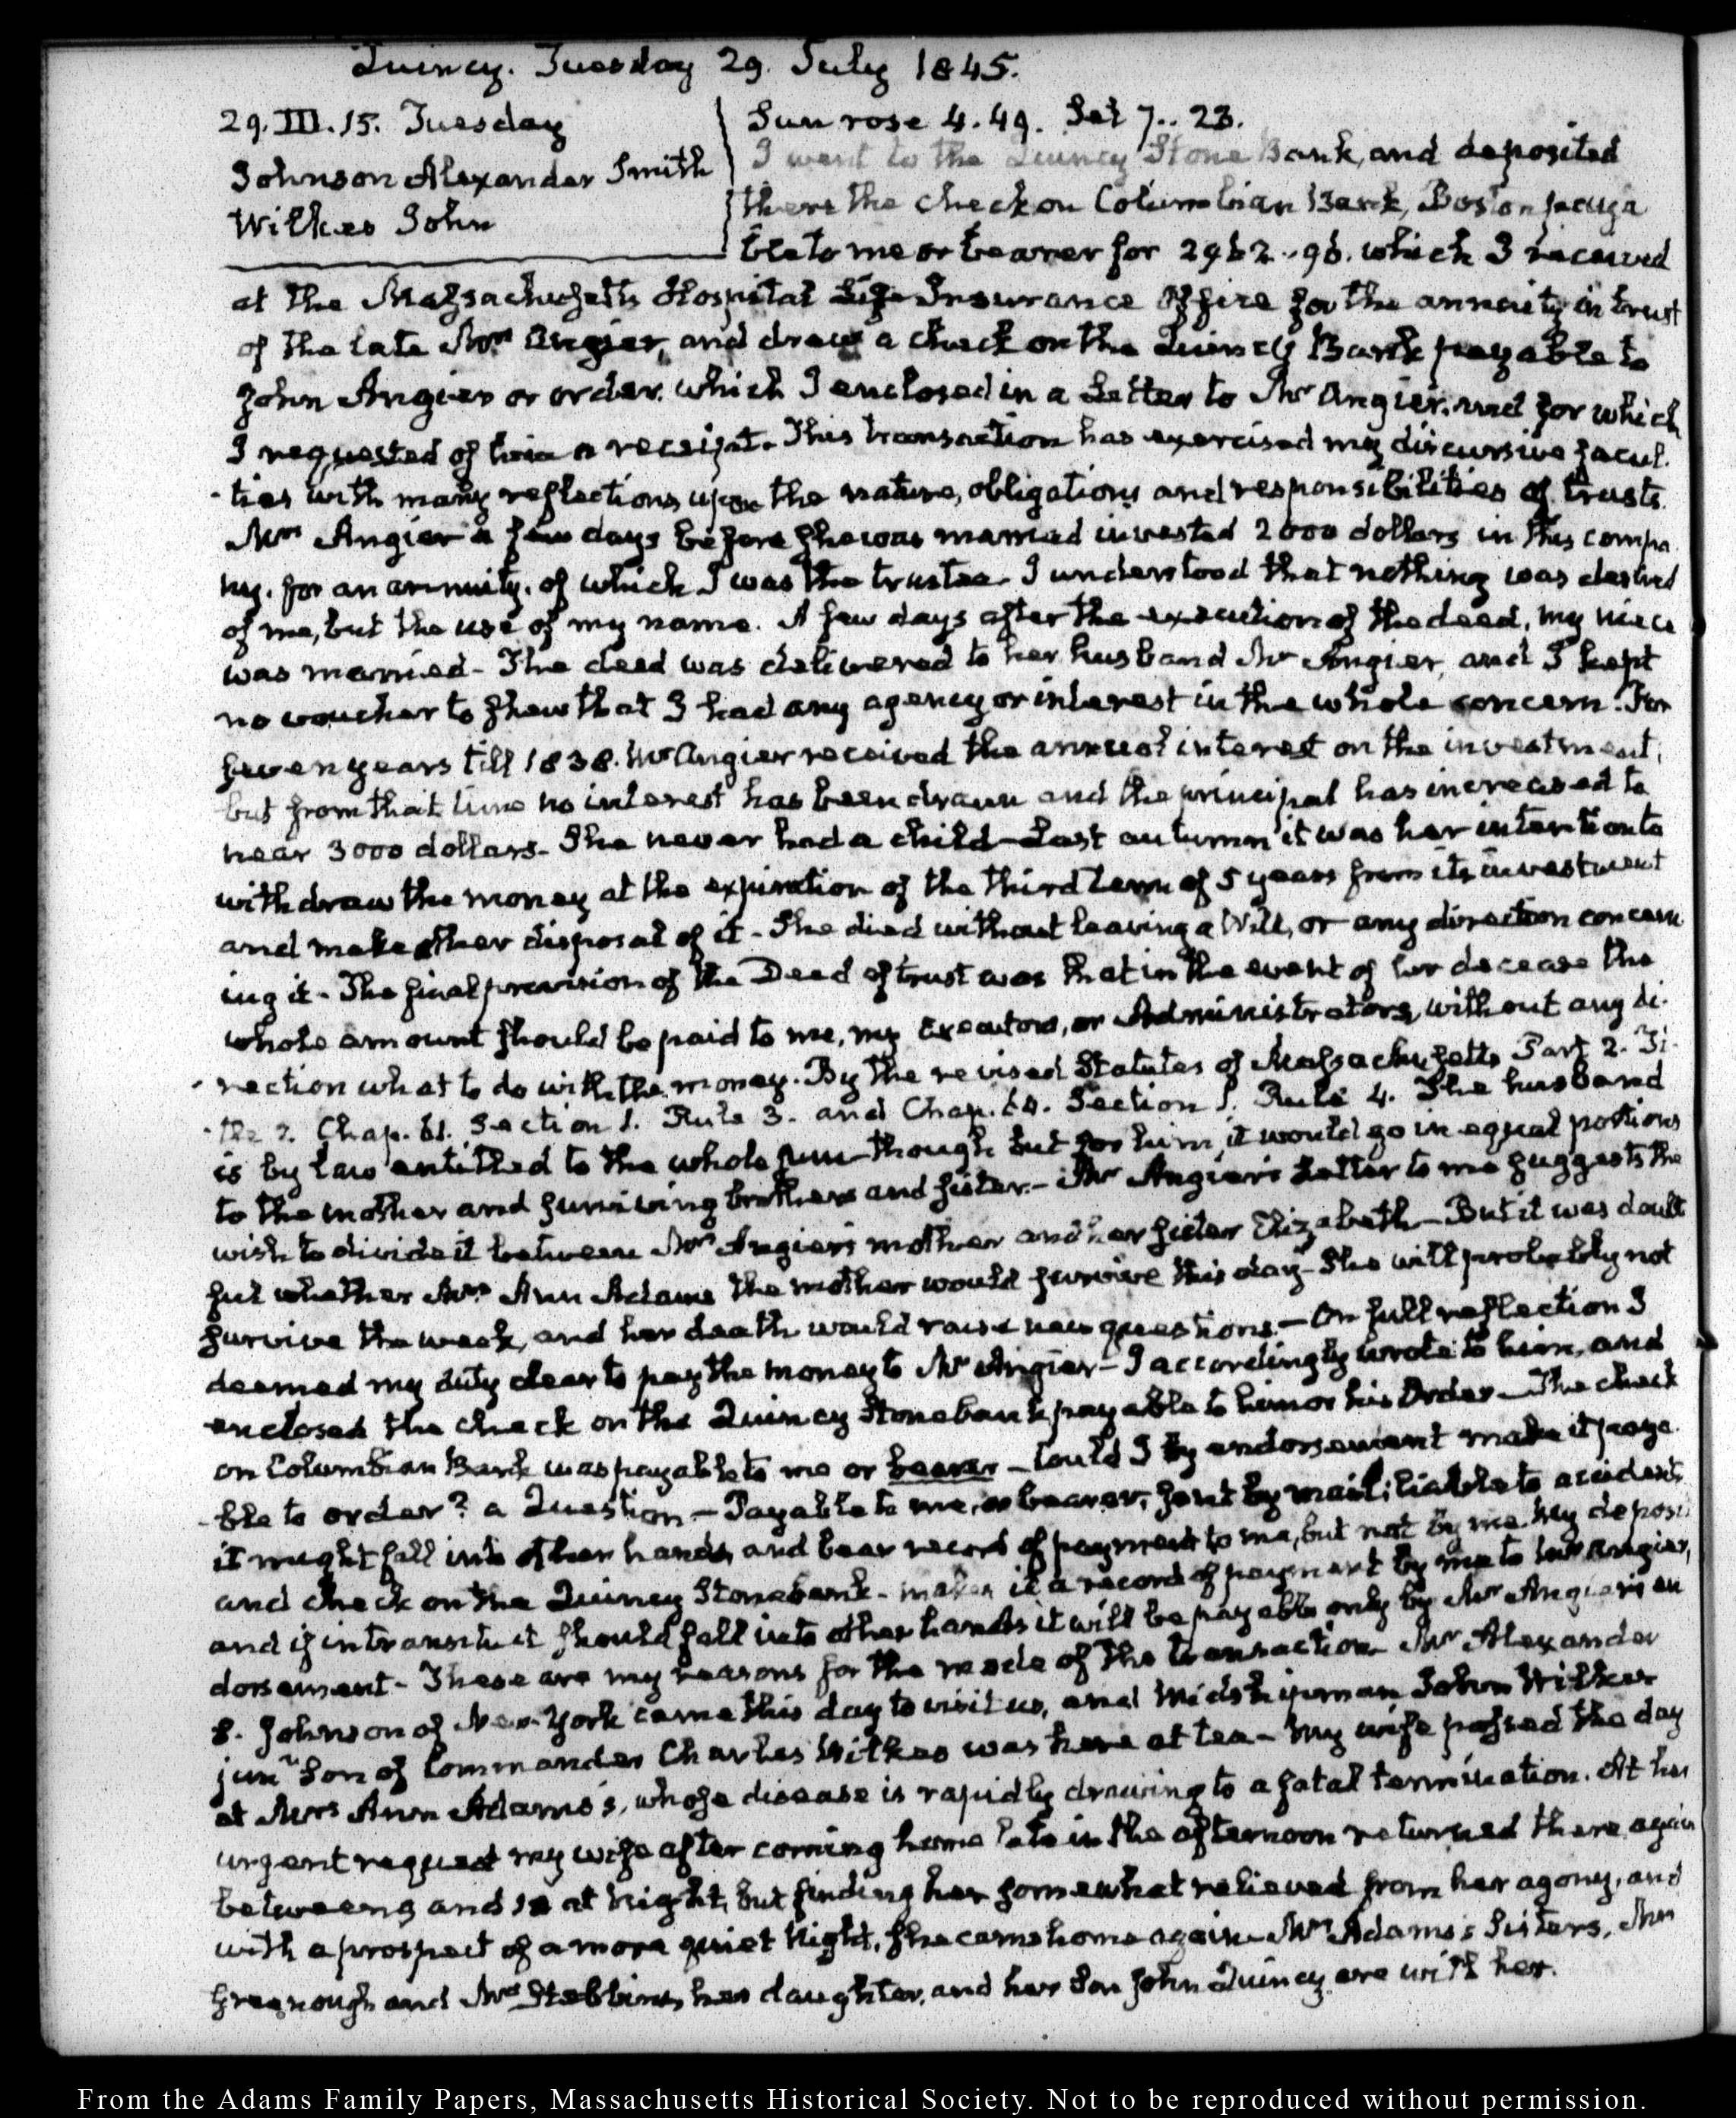 Quincy. Tuesday 29. July 1845.
29. III. 15. Tuesday
Johnson Alexander Smith
Wilkes John
Sun rose 4. 49. Set 7.. 23.
I went to the Quincy Stone Bank, and deposited
there the check on Columbian Bank, Boston paya
ble to me or bearer for which I received
at the Massachusetts Hospital Life Insurance Office for the annuity in trust
of the late Mrs Angier, and drew a check on the Quincy Bank payable to
John Angier or order, which I enclosed in a Letter to Mr Angier, and for which
I requested of him a receipt. This transaction has exercised my discursive facul-
-ties with many reflections upon the nature, obligations and responsibilities of trusts.
Mrs Angier a few days before she was married invested 2000 dollars in this compa
ny. for an annuity. of which I was the trustee. I understood that nothing was desired
of me, but the use of my name. A few days after the execution of the deed, my niece
was married - The deed was delivered to her husband Mr Angier, and I kept
no voucher to shew that I had any agency or interest in the whole concern. For
seven years till 1838. Mr Angier received the annual interest on the investment,
but from that time no interest has been drawn and the principal has increased to
near 3000 dollars - She never had a child - Last autumn it was her intention to
withdraw the money at the expiration of the third term of 5 years from its investment
and make other disposal of it - She died without leaving a Will, or any direction concern
ing it - The final provision of the Deed of trust was that in the event of her decease the
whole amount should be paid to me, my Executors, or Administrators, without any di-
-rection what to do with the money. By the revised Statutes of Massachusetts Part 2. Ti-
-tle Chap. 61. Section 1. Rule 3. and Chap. 64. Section 1. Rule 4. The husband
is by law entitled to the whole sum - though but for him, it would go in equal portions
to the mother and surviving brothers and sister. - Mr Angier's Letter to me suggests the
wish to divide it between Mrs Angier's mother and her sister Elizabeth - But it was doubt
ful whether Mrs Ann Adams the mother would survive this day - She will probably not
survive the week, and her death would raise new questions. - On full reflection I
deemed my duty clear to pay the money to Mr Angier - I accordingly wrote to him, and
enclosed the check on the Quincy Stone bank payable to him or his Order - The check
on Columbian Bank was payable to me or bearer - Could I by endorsement make it paya
-ble to order? a Question. - Payable to me, or bearer, sent by mail, liable to accidents
it might fall into other hands, and bear record of payment to me, but not by me. My deposit
and check on the Quincy Stone bank - makes it a record of payment by me to Mr Angier,
and if in transitu it should fall into other hands it will be payable only by Mr Angier's en
dorsement - These are my reasons for the mode of the transaction. Mr Alexander
S. Johnson of New-York came this day to visit us, and Midshipman John Wilkes
junr Son of Commander Charles Wilkes was here at tea - My wife passed the day
at Mrs Ann Adams's, whose disease is rapidly drawing to a fatal termination. At her
urgent request my wife after coming home late in the afternoon returned there again
between 9 and 10 at Night, but finding her somewhat relieved from her agony, and
with a prospect of a more quiet Night, she came home again - Mrs Adams's Sisters, Mrs
Greenough and Mrs Stebbins, her daughter, and her Son John Quincy are with her.
From the Adams Family Papers, Massachusetts Historical Society. Not to be reproduced without permission.